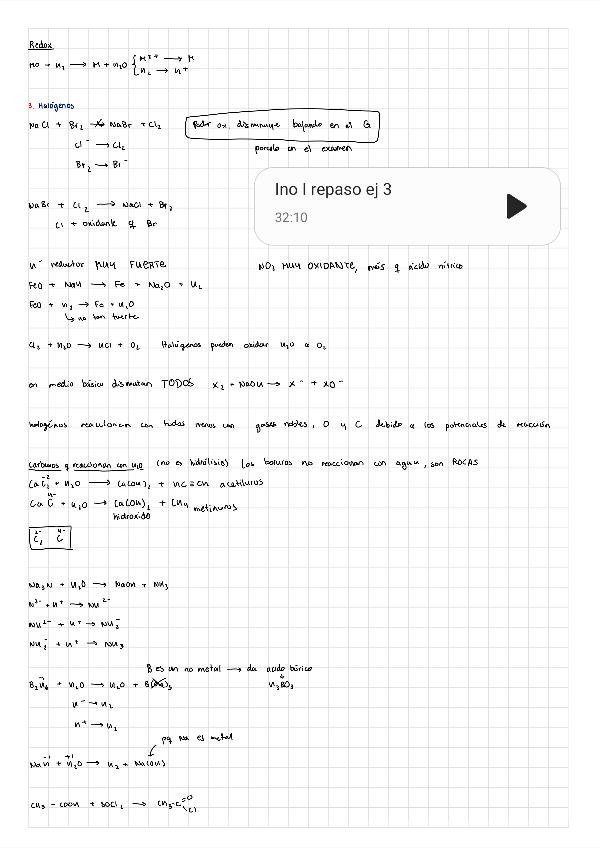 Redox
MO + H₂ → M + H₂O { M²⁺ → M
H₂ → H⁺
3. Halógenos
NaCl + Br₂ ↛ NaBr + Cl₂
Poder ox. disminuye bajando en el G
Cl⁻ → Cl₂
ponerlo en el examen
Br₂ → Br⁻
Ino I repaso ej 3
32:10
NaBr + Cl₂ → NaCl + Br₂
Cl + oxidante q Br
H⁻ reductor MUY FUERTE
NO₂ MUY OXIDANTE, más q ácido nítrico
FeO + NaH → Fe + Na₂O + H₂
FeO + H₂ → Fe + H₂O
↳ no tan fuerte
Cl₂ + H₂O → HCl + O₂ Halógenos pueden oxidar H₂O a O₂
en medio básico dismutan TODOS X₂ + NaOH → X⁻ + XO⁻
halógenos reaccionan con todos menos con gases nobles, O y C debido a los potenciales de reacción
Carburos q reaccionan con H₂O (no es hidrólisis) Los boruros no reaccionan con agua, son ROCAS
CaC₂⁻² + H₂O → Ca(OH)₂ + HC≡CH acetiluros
CaC⁴⁻ + H₂O → Ca(OH)₂ + CH₄ metinuros
hidróxido
C₂²⁻ C⁴⁻
Na₃N + H₂O → NaOH + NH₃
N³⁻ + H⁺ → NH²⁻
NH²⁻ + H⁺ → NH₂⁻
NH₂⁻ + H⁺ → NH₃
B es un no metal → da ácido bórico
B₂H₆ + H₂O → H₂O + B(OH)₃
H₃BO₃
H⁻ → H₂
H⁺ → H₂
pq Na es metal
NaH⁻¹ + H₂⁺¹O → H₂ + Na(OH)
CH₃ - COOH + SOCl₂ → CH₃-C=O
Cl